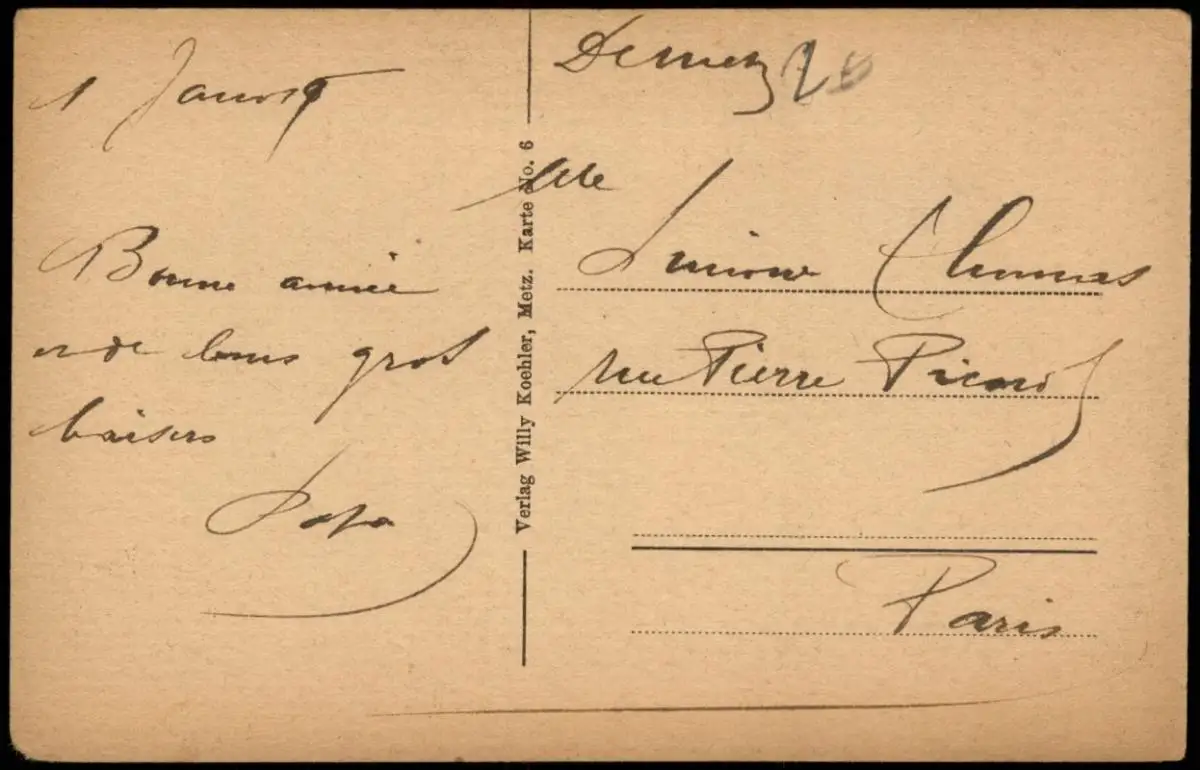 1 Janv 19
Bonne année
et de bons gros
baisers
Papa
Verlag Willy Koehler, Metz. Karte No. 6
De Metz
Mlle
Simone Thomas
rue Pierre Picard
Paris